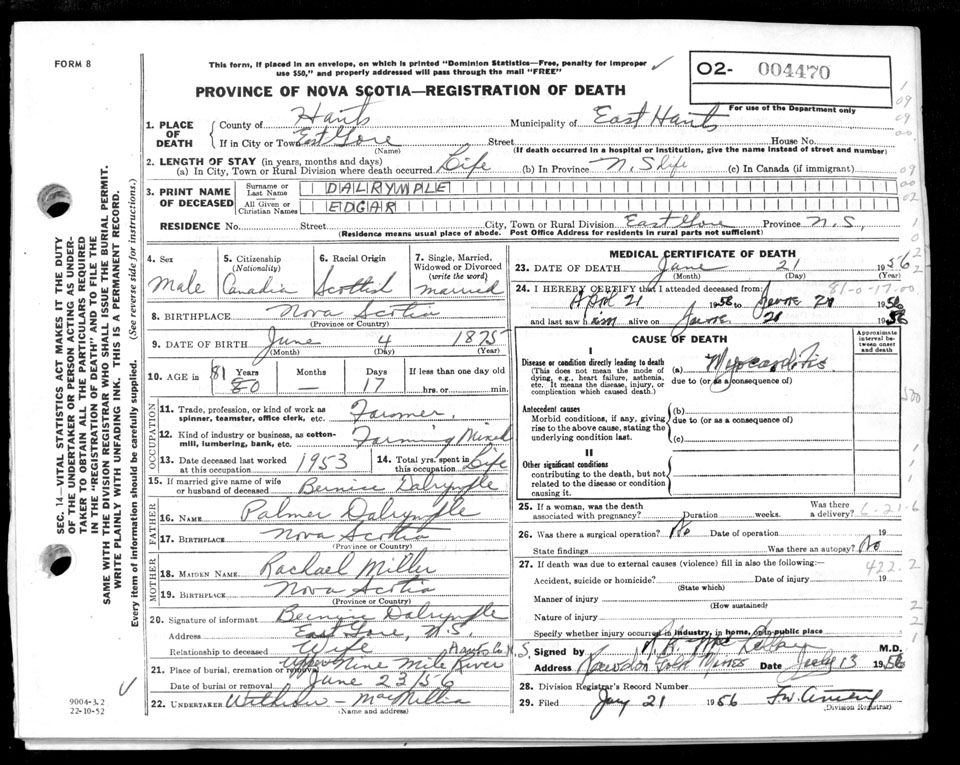 FORM 8
This form, if placed in an envelope, on which is printed "Dominion Statistics—Free, penalty for improper
use $50," and properly addressed will pass through the mail "FREE"
O2- 004470
For use of the Department only
PROVINCE OF NOVA SCOTIA—REGISTRATION OF DEATH
1. PLACE OF DEATH
County of Hants Municipality of East Hants
If in City or Town East Gore Street House No.
(Name) (If death occurred in a hospital or institution, give the name instead of street and number)
2. LENGTH OF STAY (in years, months and days)
(a) In City, Town or Rural Division where death occurred. Life (b) In Province N.S life (c) In Canada (if immigrant)
3. PRINT NAME OF DECEASED
Surname or Last Name DALRYMPLE
All Given or Christian Names EDGAR
RESIDENCE No. Street City, Town or Rural Division East Gore Province N.S.
(Residence means usual place of abode. Post Office Address for residents in rural parts not sufficient)
4. Sex
Male
5. Citizenship
(Nationality)
Canadia
6. Racial Origin
Scottish
7. Single, Married, Widowed or Divorced
(write the word)
married
8. BIRTHPLACE Nova Scotia
(Province or Country)
9. DATE OF BIRTH June 4 1875
(Month) (Day) (Year)
10. AGE in 81 Years Months Days If less than one day old
80 — 17 hrs. or min.
OCCUPATION
11. Trade, profession, or kind of work as spinner, teamster, office clerk, etc. Farmer.
12. Kind of industry or business, as cotton-mill, lumbering, bank, etc. Farming Mixed
13. Date deceased last worked at this occupation 1953
14. Total yrs. spent in this occupation Life
15. If married give name of wife or husband of deceased Bernice Dalrymple
FATHER
16. NAME Palmer Dalrymple
17. BIRTHPLACE Nova Scotia
(Province or Country)
MOTHER
18. MAIDEN NAME Rachael Miller
19. BIRTHPLACE Nova Scotia
(Province or Country)
20. Signature of informant Bernice Dalrymple
Address East Gore, N.S.
Relationship to deceased Wife Hants Co N.S.
21. Place of burial, cremation or removal Upper Nine Mile River
Date of burial or removal June 23/56
22. UNDERTAKER MacMillia
(Name and address)
MEDICAL CERTIFICATE OF DEATH
23. DATE OF DEATH June 21 1956
(Month) (Day) (Year)
24. I HEREBY CERTIFY that I attended deceased from: 81-0-17.00
April 21 1956 to June 21 1956
and last saw him alive on June 21 1956
CAUSE OF DEATH
Approximate interval between onset and death
I
Disease or condition directly leading to death
(This does not mean the mode of dying, e.g., heart failure, asthenia, etc. It means the disease, injury, or complication which caused death.)
(a) Myocarditis
due to (or as a consequence of)
Antecedent causes
Morbid conditions, if any, giving rise to the above cause, stating the underlying condition last.
(b)
due to (or as a consequence of)
(c)
II
Other significant conditions
contributing to the death, but not related to the disease or condition causing it.
25. If a woman, was the death associated with pregnancy? Duration weeks. Was there a delivery? 6-21-6
26. Was there a surgical operation? No Date of operation 19
State findings Was there an autopsy? No
27. If death was due to external causes (violence) fill in also the following:— 422.2
Accident, suicide or homicide? Date of injury 19
(State which)
Manner of injury
(How sustained)
Nature of injury
Specify whether injury occurred in industry, in home, or in public place
Signed by M.D.
Address Rawdon Gold Mines Date July 13 1956
28. Division Registrar's Record Number
29. Filed 21 1956
(Division Registrar)
SEC. 14—VITAL STATISTICS ACT MAKES IT THE DUTY
OF THE UNDERTAKER OR PERSON ACTING AS UNDER-
TAKER TO OBTAIN ALL THE PARTICULARS REQUIRED
IN THE "REGISTRATION OF DEATH" AND TO FILE THE
SAME WITH THE DIVISION REGISTRAR WHO SHALL ISSUE THE BURIAL PERMIT.
WRITE PLAINLY WITH UNFADING INK. THIS IS A PERMANENT RECORD.
Every item of information should be carefully supplied. (See reverse side for instructions.)
9004-3.2
22-10-52